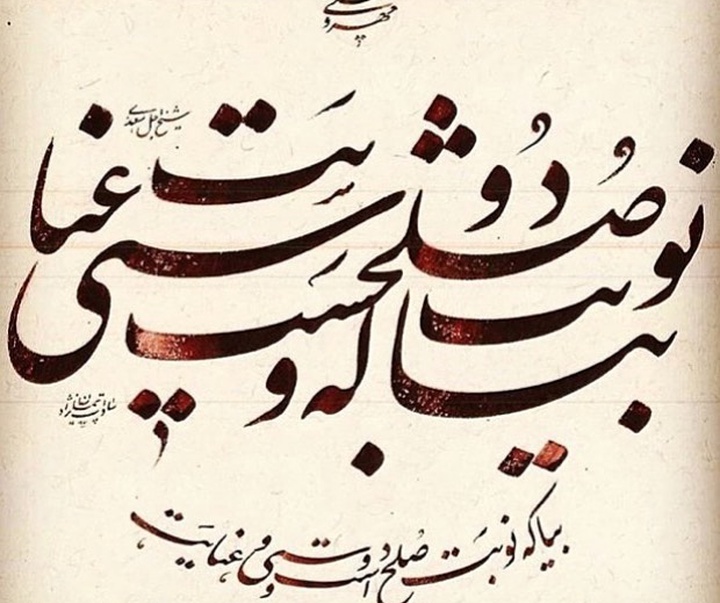 شیخ اجل سعدی
بیا که نوبت صلح است و دوستی و عنایت
بیا که نوبت صلح است و دوستی و عنایت